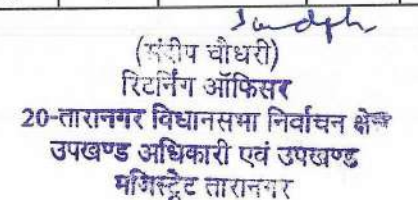 (संदीप चौधरी)
रिटर्निंग ऑफिसर
20-तारानगर विधानसभा निर्वाचन क्षेत्र
उपखण्ड अधिकारी एवं उपखण्ड
मजिस्ट्रेट तारानगर